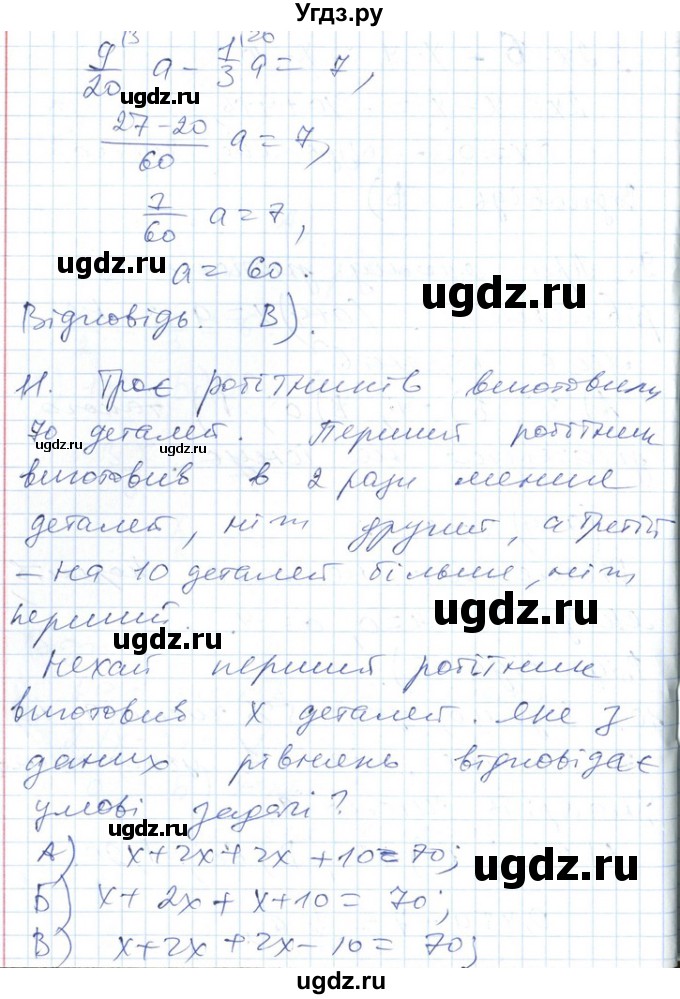 Угдз.ру
9/20 |3 a - 1/3 |20 a = 7,
ugdz.ru
27-20/60 a = 7,
7/60 a = 7,
ugdz.ru
a = 60.
ugdz.ru
Відповідь. В).
11. Троє робітників виготовили
70 деталей. Перший робітник
ugdz.ru
виготовив в 2 рази менше
деталей, ніж другий, а третій
– на 10 деталей більше, ніж
ugdz.ru
перший.
ugdz.ru
Нехай перший робітник
виготовив x деталей. Яке з
даних рівнянь відповідає
умові задачі?
ugdz.ru
А) x+2x+2x+10=70;
Б) x+2x+x+10=70;
ugdz.ru
В) x+2x+2x-10=70;
ugdz.ru